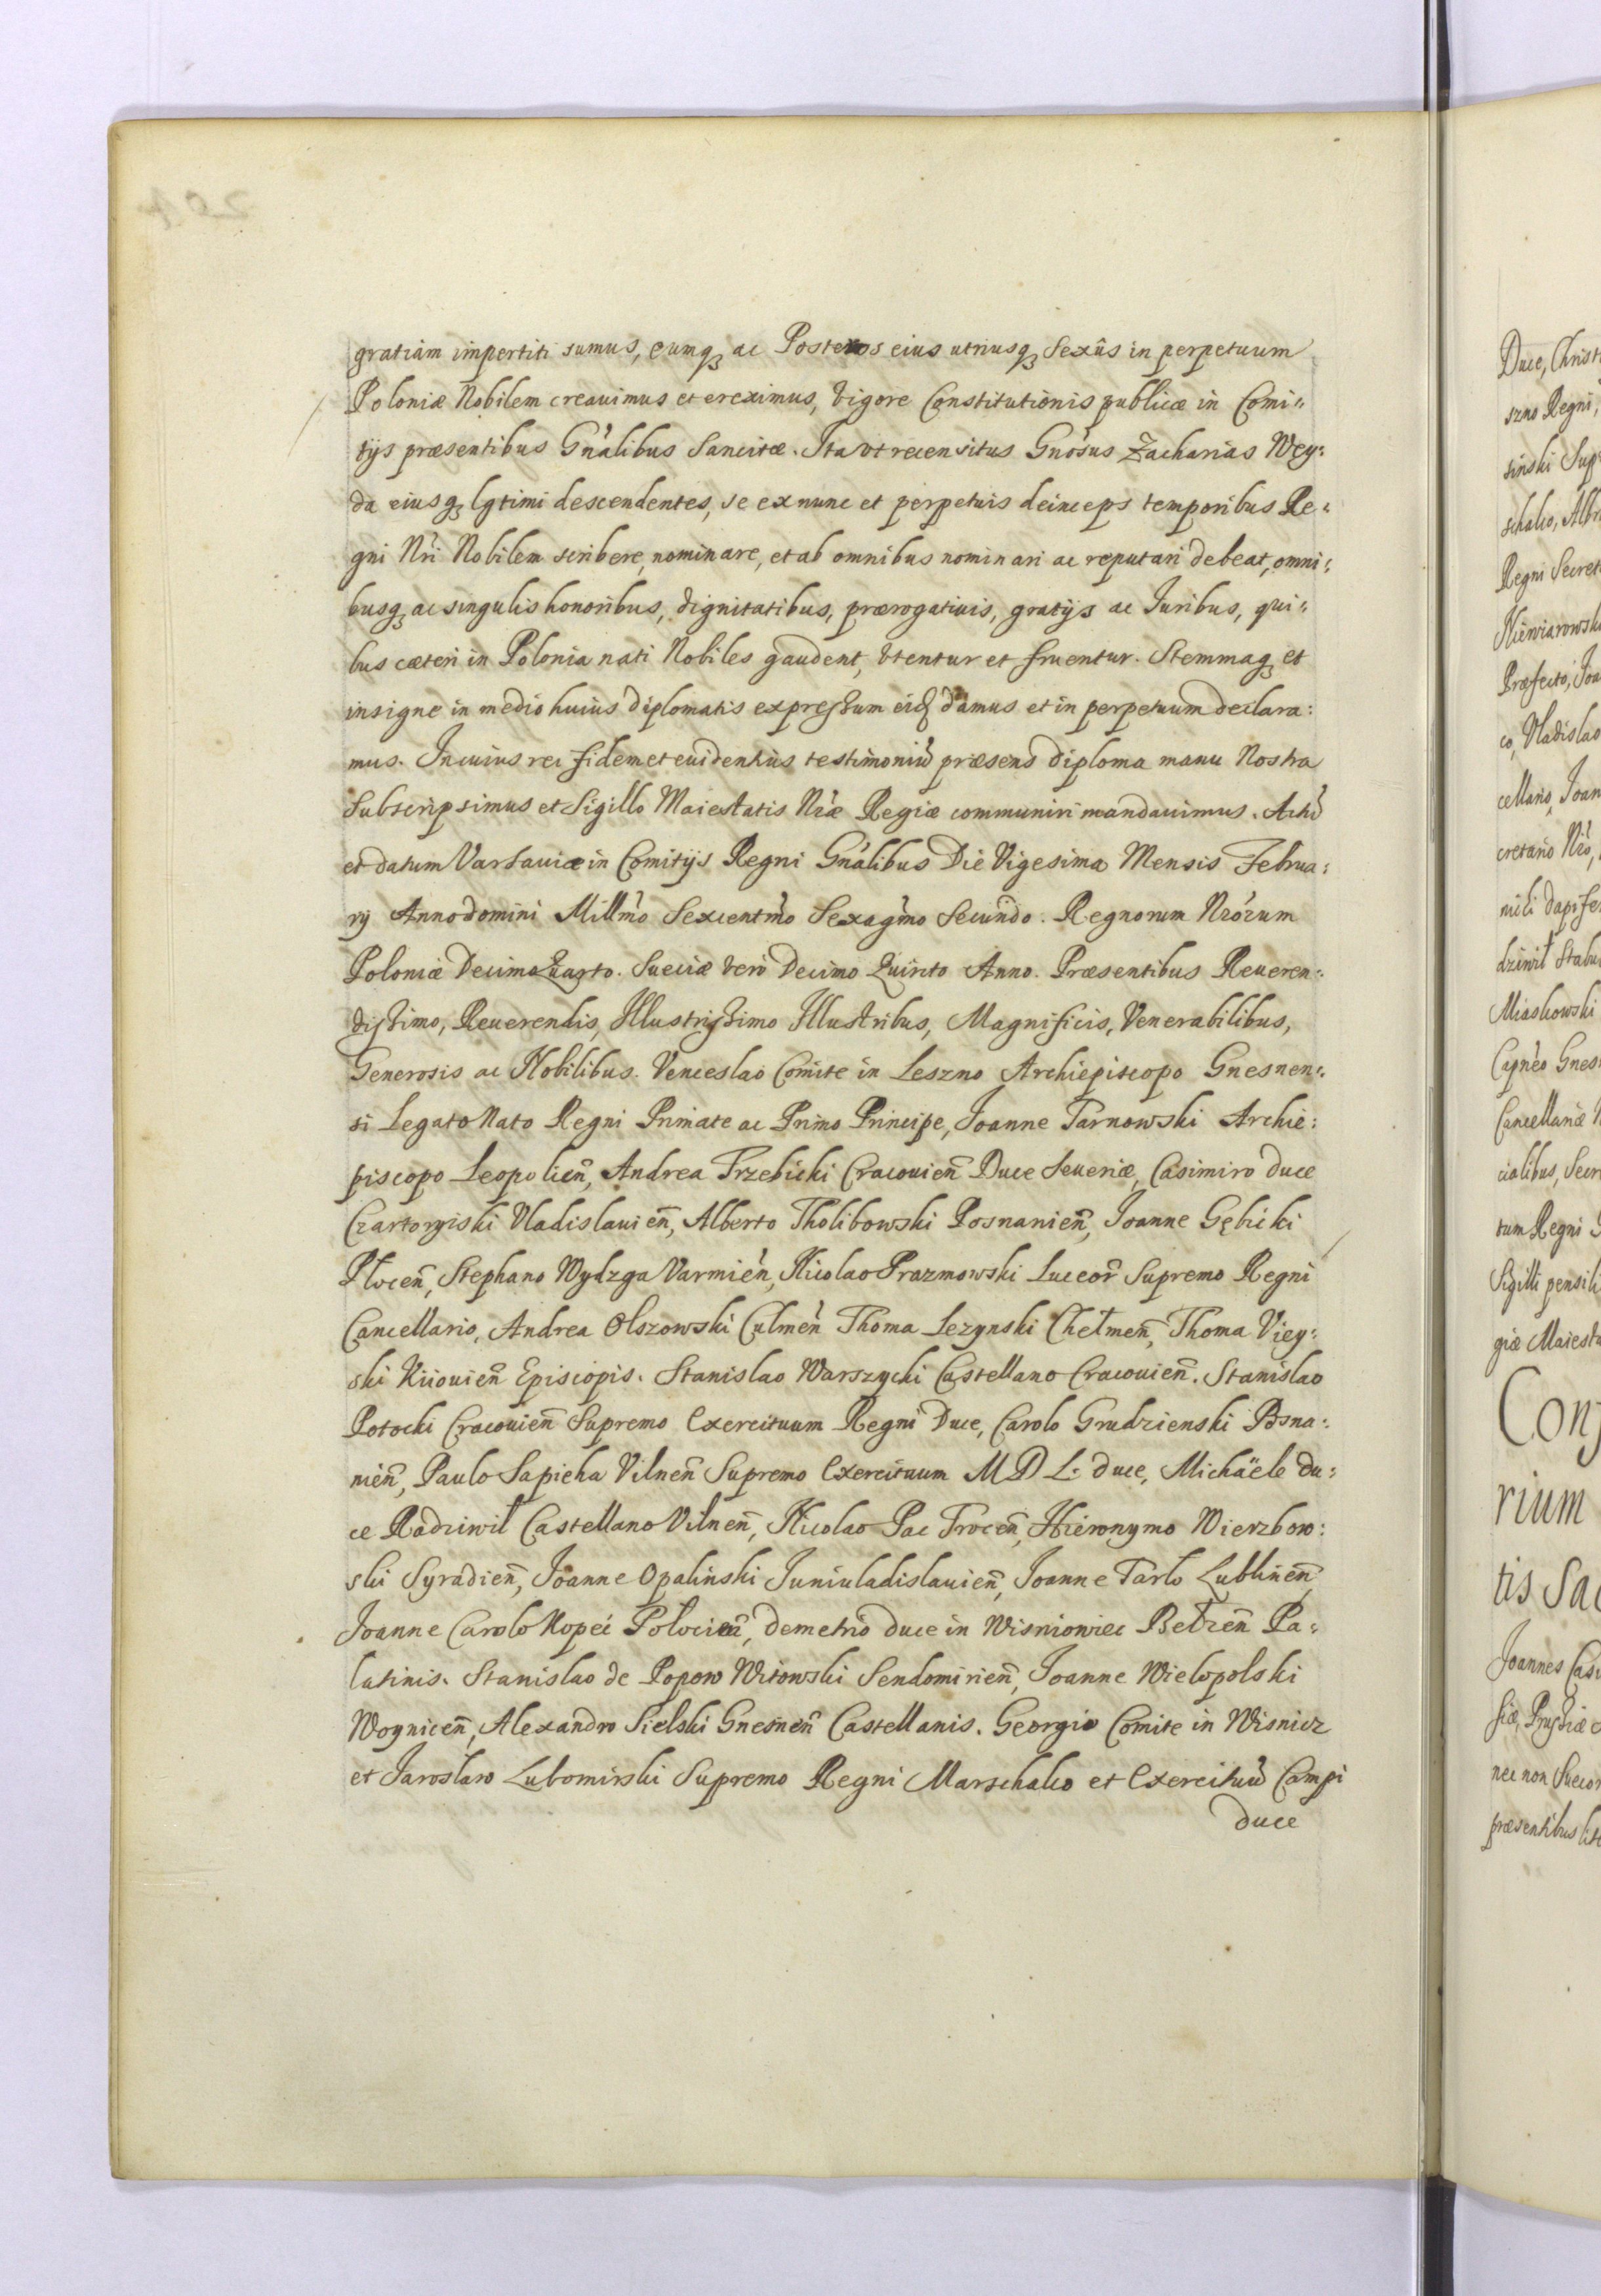 gratiam impertiti sumus, eumqꝫ ac Posteros eius utriusqꝫ Sexûs in perpetuum
Poloniæ Nobilem creauimus et ereximus, Vigore Constitutionis publicæ in Comi⸗
tijs præsentibus Gn̄alibus Sancitæ. Ita vt recensitus Gnōsus Zacharias Wey⸗
da eiusqꝫ lgtimi descendentes, se ex nunc et perpetuis deinceps temporibus Re⸗
gni Nr̄i Nobilem scribere, nominare, et ab omnibus nominari ac reputari debeat, omni⸗
busqꝫ ac singulis honoribus, dignitatibus, prærogatiuis, gratijs ac Iuribus, qui⸗
bus cæteri in Polonia nati Nobiles gaudent, Vtentur et fruentur. Stemmaqꝫ et
insigne in medio huius diplomatis expressum damus et in perpetuum declara⸗
mus. In cuius rei fidem et euidentius testimoniū præsens diploma manu Nostra
Subscripsimus et Sigillo Maiestatis Nr̄æ Regiæ communiri mandauimus. Actū
et datum Varsauiæ in Comitijs Regni Gn̄alibus Die Vigesima Mensis Februa⸗
rij Anno domini Millm̄o Sexcentm̄o Sexagm̄o Secundo. Regnorum Nrōrum
Poloniæ Decimo Quarto. Sueciæ verò Decimo Quinto Anno. Præsentibus Reueren⸗
dissimo, Reuerendis, Illustrissimo Illustribus, Magnificis, Venerabilibus,
Generosis ac Nobilibus. Venceslao Comite in Leszno Archiepiscopo Gnesnen⸗
si Legato Nato Regni Primate ac Primo Principe, Joanne Tarnowski Archie⸗
piscopo Leopolien̄, Andrea Trzebicki Cracouien̄ Duce Seueriæ, Casimiro duce
Czartoryiski Vladislauien̄, Alberto Tholibowski Posnanien̄, Joanne Gębicki
Płocen̄, Stephano Wydzga Varmien̄, Nicolao Prazmowski Luceor̄ Supremo Regni
Cancellario, Andrea Olszowski Culmen̄ Thoma Lezynski Chełmen̄, Thoma Viey⸗
ski Kiiouien̄ Episcopis. Stanislao Warszycki Castellano Cracouien̄. Stanislao
Potocki Cracouien̄ Supremo Exercituum Regni Duce, Carolo Grudzienski Posna⸗
nien̄, Paulo Sapieha Vilnen̄ Supremo Exercituum M D L: duce, Michäele du⸗
ce Radziwił Castellano Vilnen̄, Nicolao Pac Trocen̄, Hieronymo Wierzbow⸗
ski Syradien̄, Joanne Opalinski Juniuladislauien̄, Joanne Tarlo Lublinen̄
Joanne Carolo Kopeć Połocien̄, demetrio duce in Wisniowiec Bełzen̄ Pa⸗
latinis. Stanislao de Popow Witowski Sendomirien̄, Joanne Wielopolski
Woynicen̄, Alexandro Sielski Gnesnen̄ Castellanis. Georgio Comite in Wisnicz
et Jarosław Lubomirski Supremo Regni Marschalco et Exercituū Campi
duce
Duce, Christ
szno Regni,
sinski Sup
schalco, Alb
Regni Secret
Niewiarowsk
Præfecto, Joa
co, Vladislao
cellario, Joan
cretario Nr̄o,
mili dapife
dziwił Stabu
Miaskowski
Gnes
Cancellariæ
cialibus, Secr
tum Regni
Sigilli pensili
giæ Maiesta
Conf
rium
tis Sac
Joannes Casi
siæ, Prussiæ
nec non Suecor
præsentibus lite